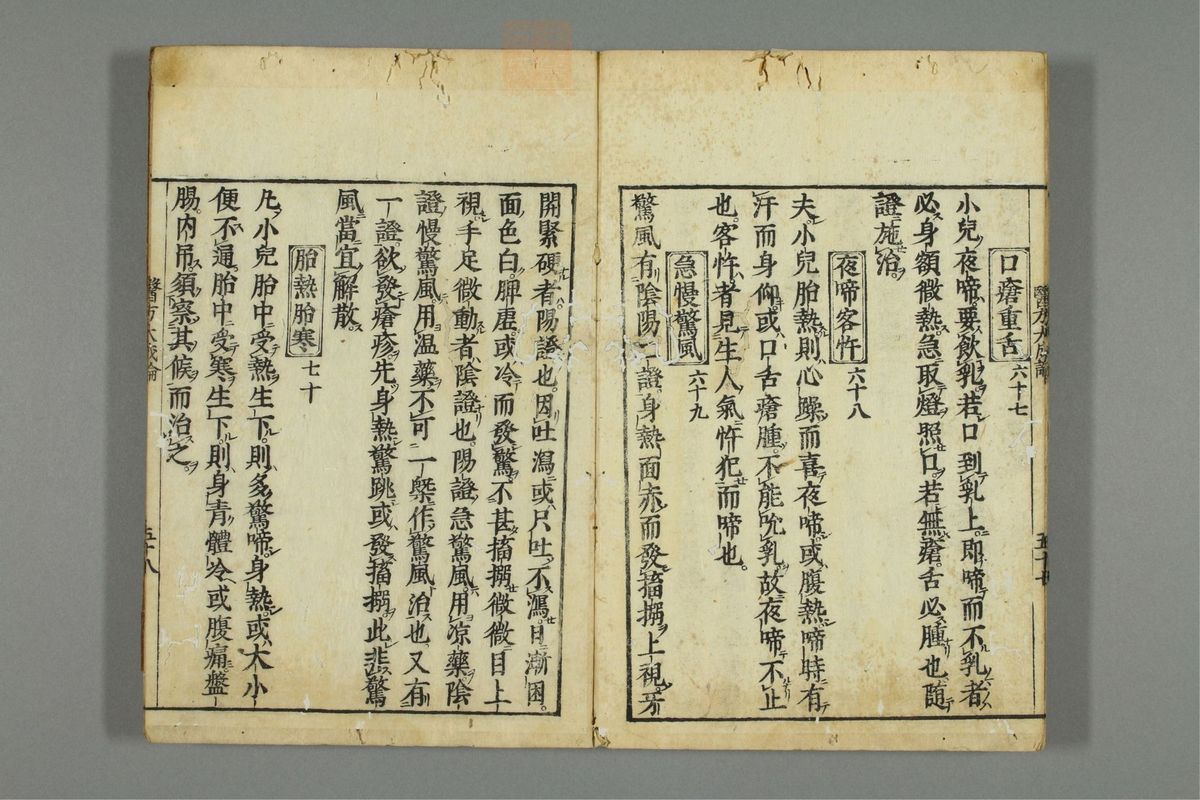 口瘡重舌 六十七
小兒夜啼要飲乳若口到乳上即啼而不乳者
必身額微熱急取燈照口若無瘡舌必腫也隨
證施治
夜啼客忤 六十八
夫小兒胎熱則心躁而喜夜啼或腹熱啼時有
汗而身仰或口舌瘡腫不能吮乳故夜啼不止
也客忤者見生人氣忤犯而啼也
急慢驚風 六十九
驚風有陰陽二證身熱面赤而發搐搦上視牙
開緊硬者陽證也因吐瀉或只吐不瀉日漸困
面色白脾虚或冷而發驚不甚搐搦微微目上
視手足微動者陰證也陽證急驚風用凉藥陰
證慢驚風用温藥不可一槩作驚風治也又有
一證欲發瘡疹先身熱驚跳或發搐搦此非驚
風當宜解散
胎熱胎寒 七十
凢小兒胎中受熱生下則多驚啼身熱或大小
便不通胎中受寒生下則身青體冷或腹痛盤
腸内吊須察其候而治之
五十八